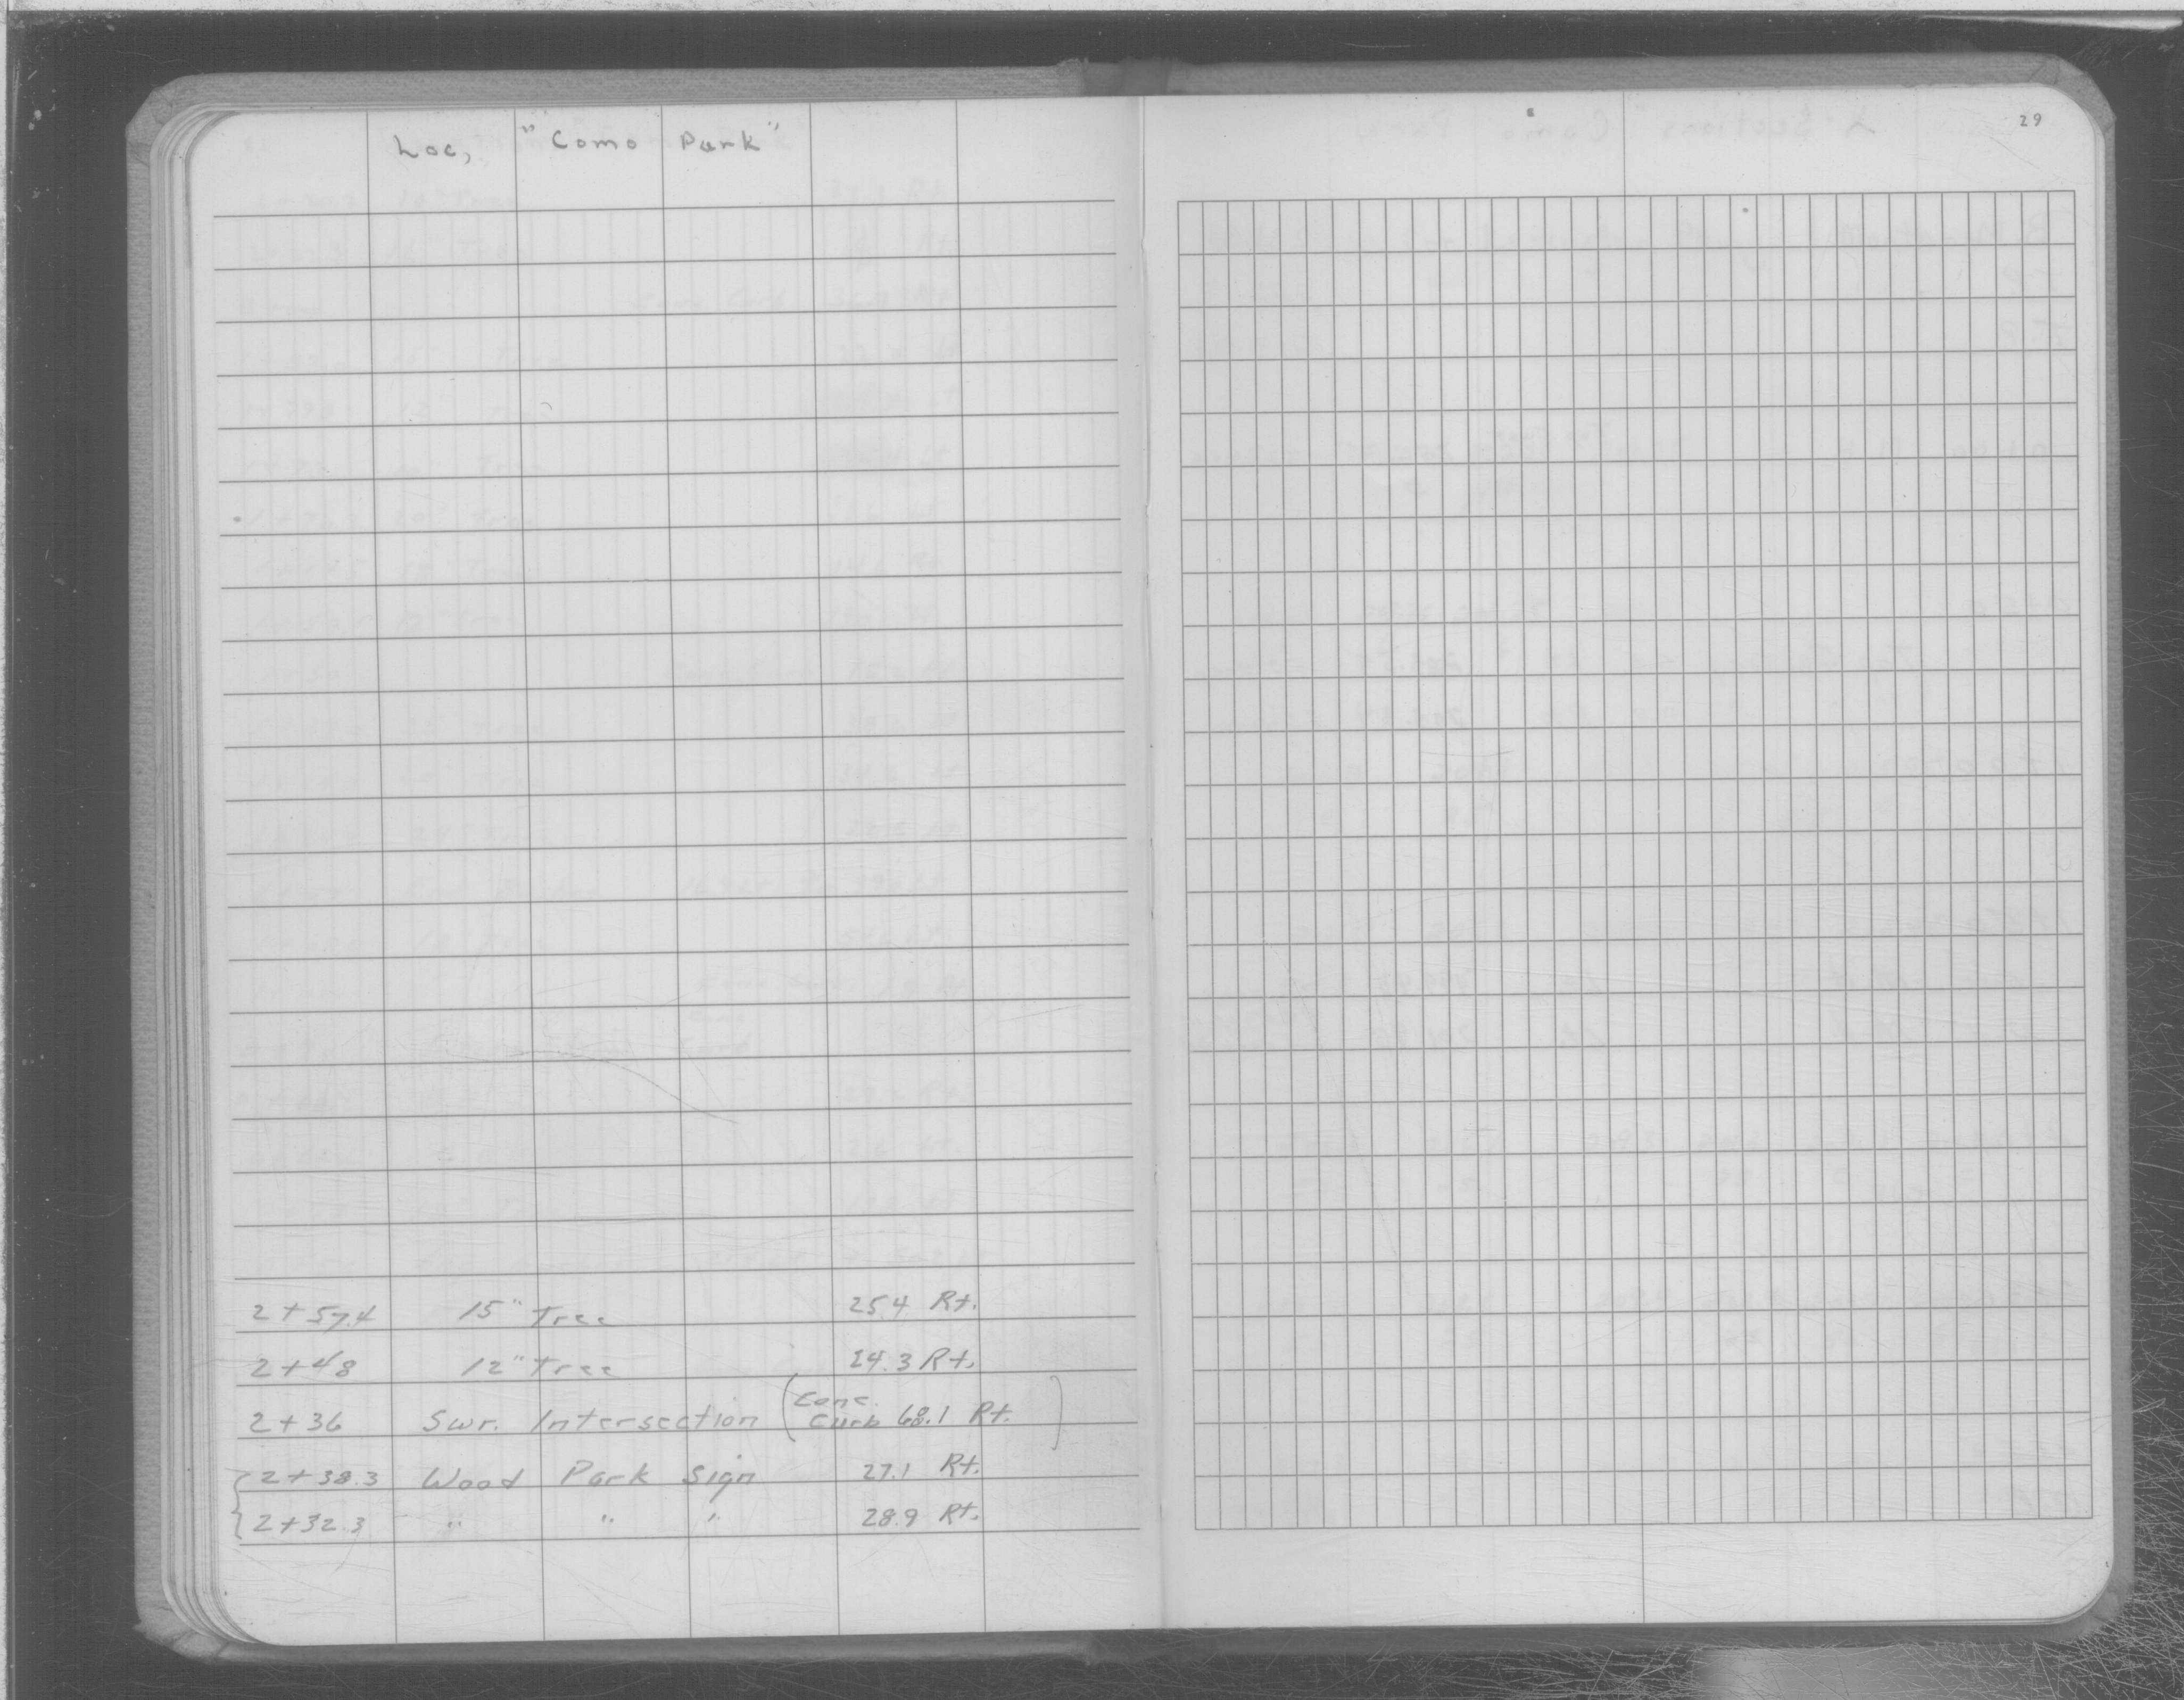 29
Loc, "Como Park"
2+57.4 15" Tree 25.4 Rt.
2+48 12" Tree 24.3 Rt.
2+36 Swr. Intersection (Conc. Curb 68.1 Rt.)
2+38.3 Wood Park Sign 27.1 Rt.
2+32.3 " " " 28.9 Rt.